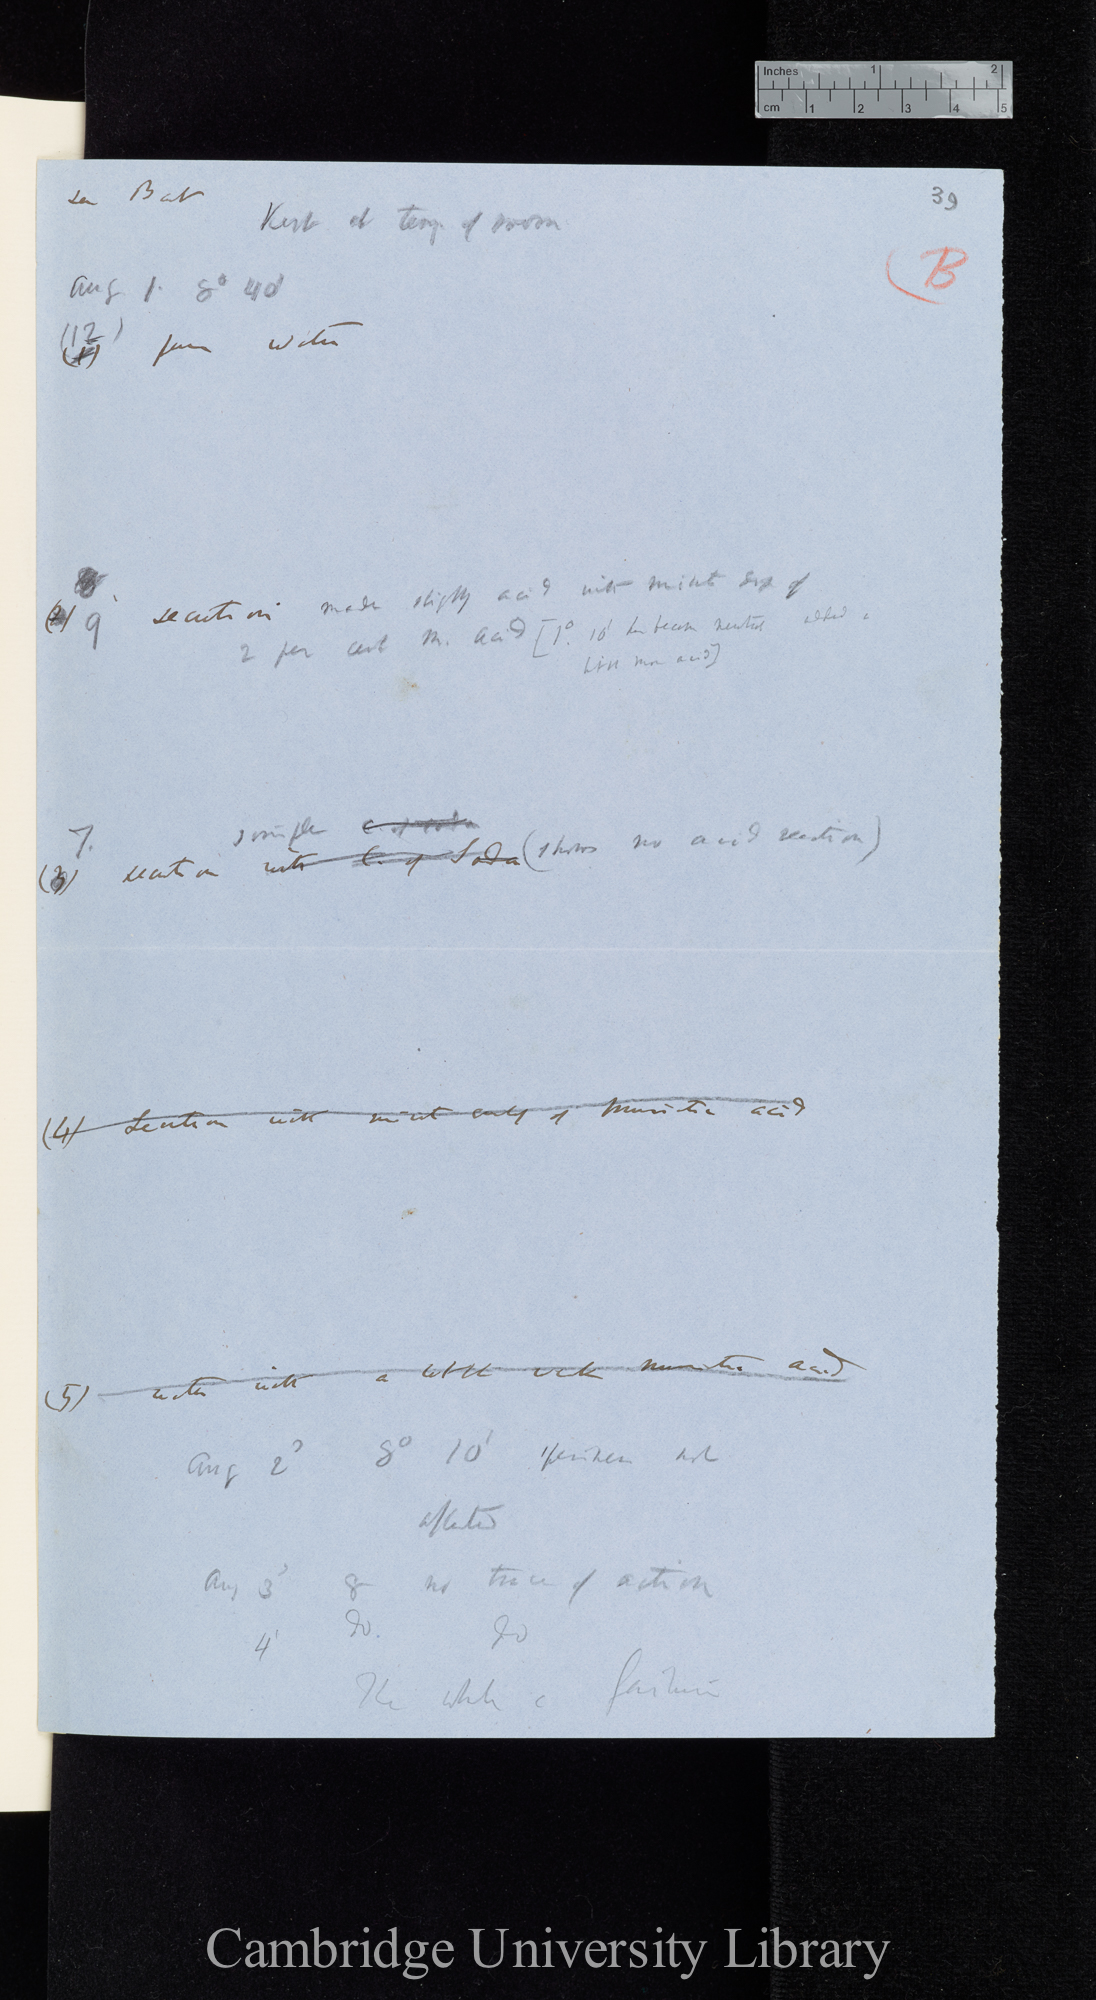 Inches 1 2
cm 1 2 3 4 5
39
in Bat
Kept at temp of room
B
Aug. 1. 8° 40'
(12)
(1) pure water
(2) 9 secretion made slightly acid with minute drop of
2 per cent M. acid [1° 10' has become neutral added a
little more acid]
7. simple C. of Soda
(3) secretion with C. of Soda (shows no acid reaction)
(4) Secretion with minute of Muriatic acid
(5) water with a little weak muriatic acid
Aug 2d 8° 10' specimen not
affected
Aug 3d 8° no trace of action
4' Do. Do
The whole a failure
Cambridge University Library